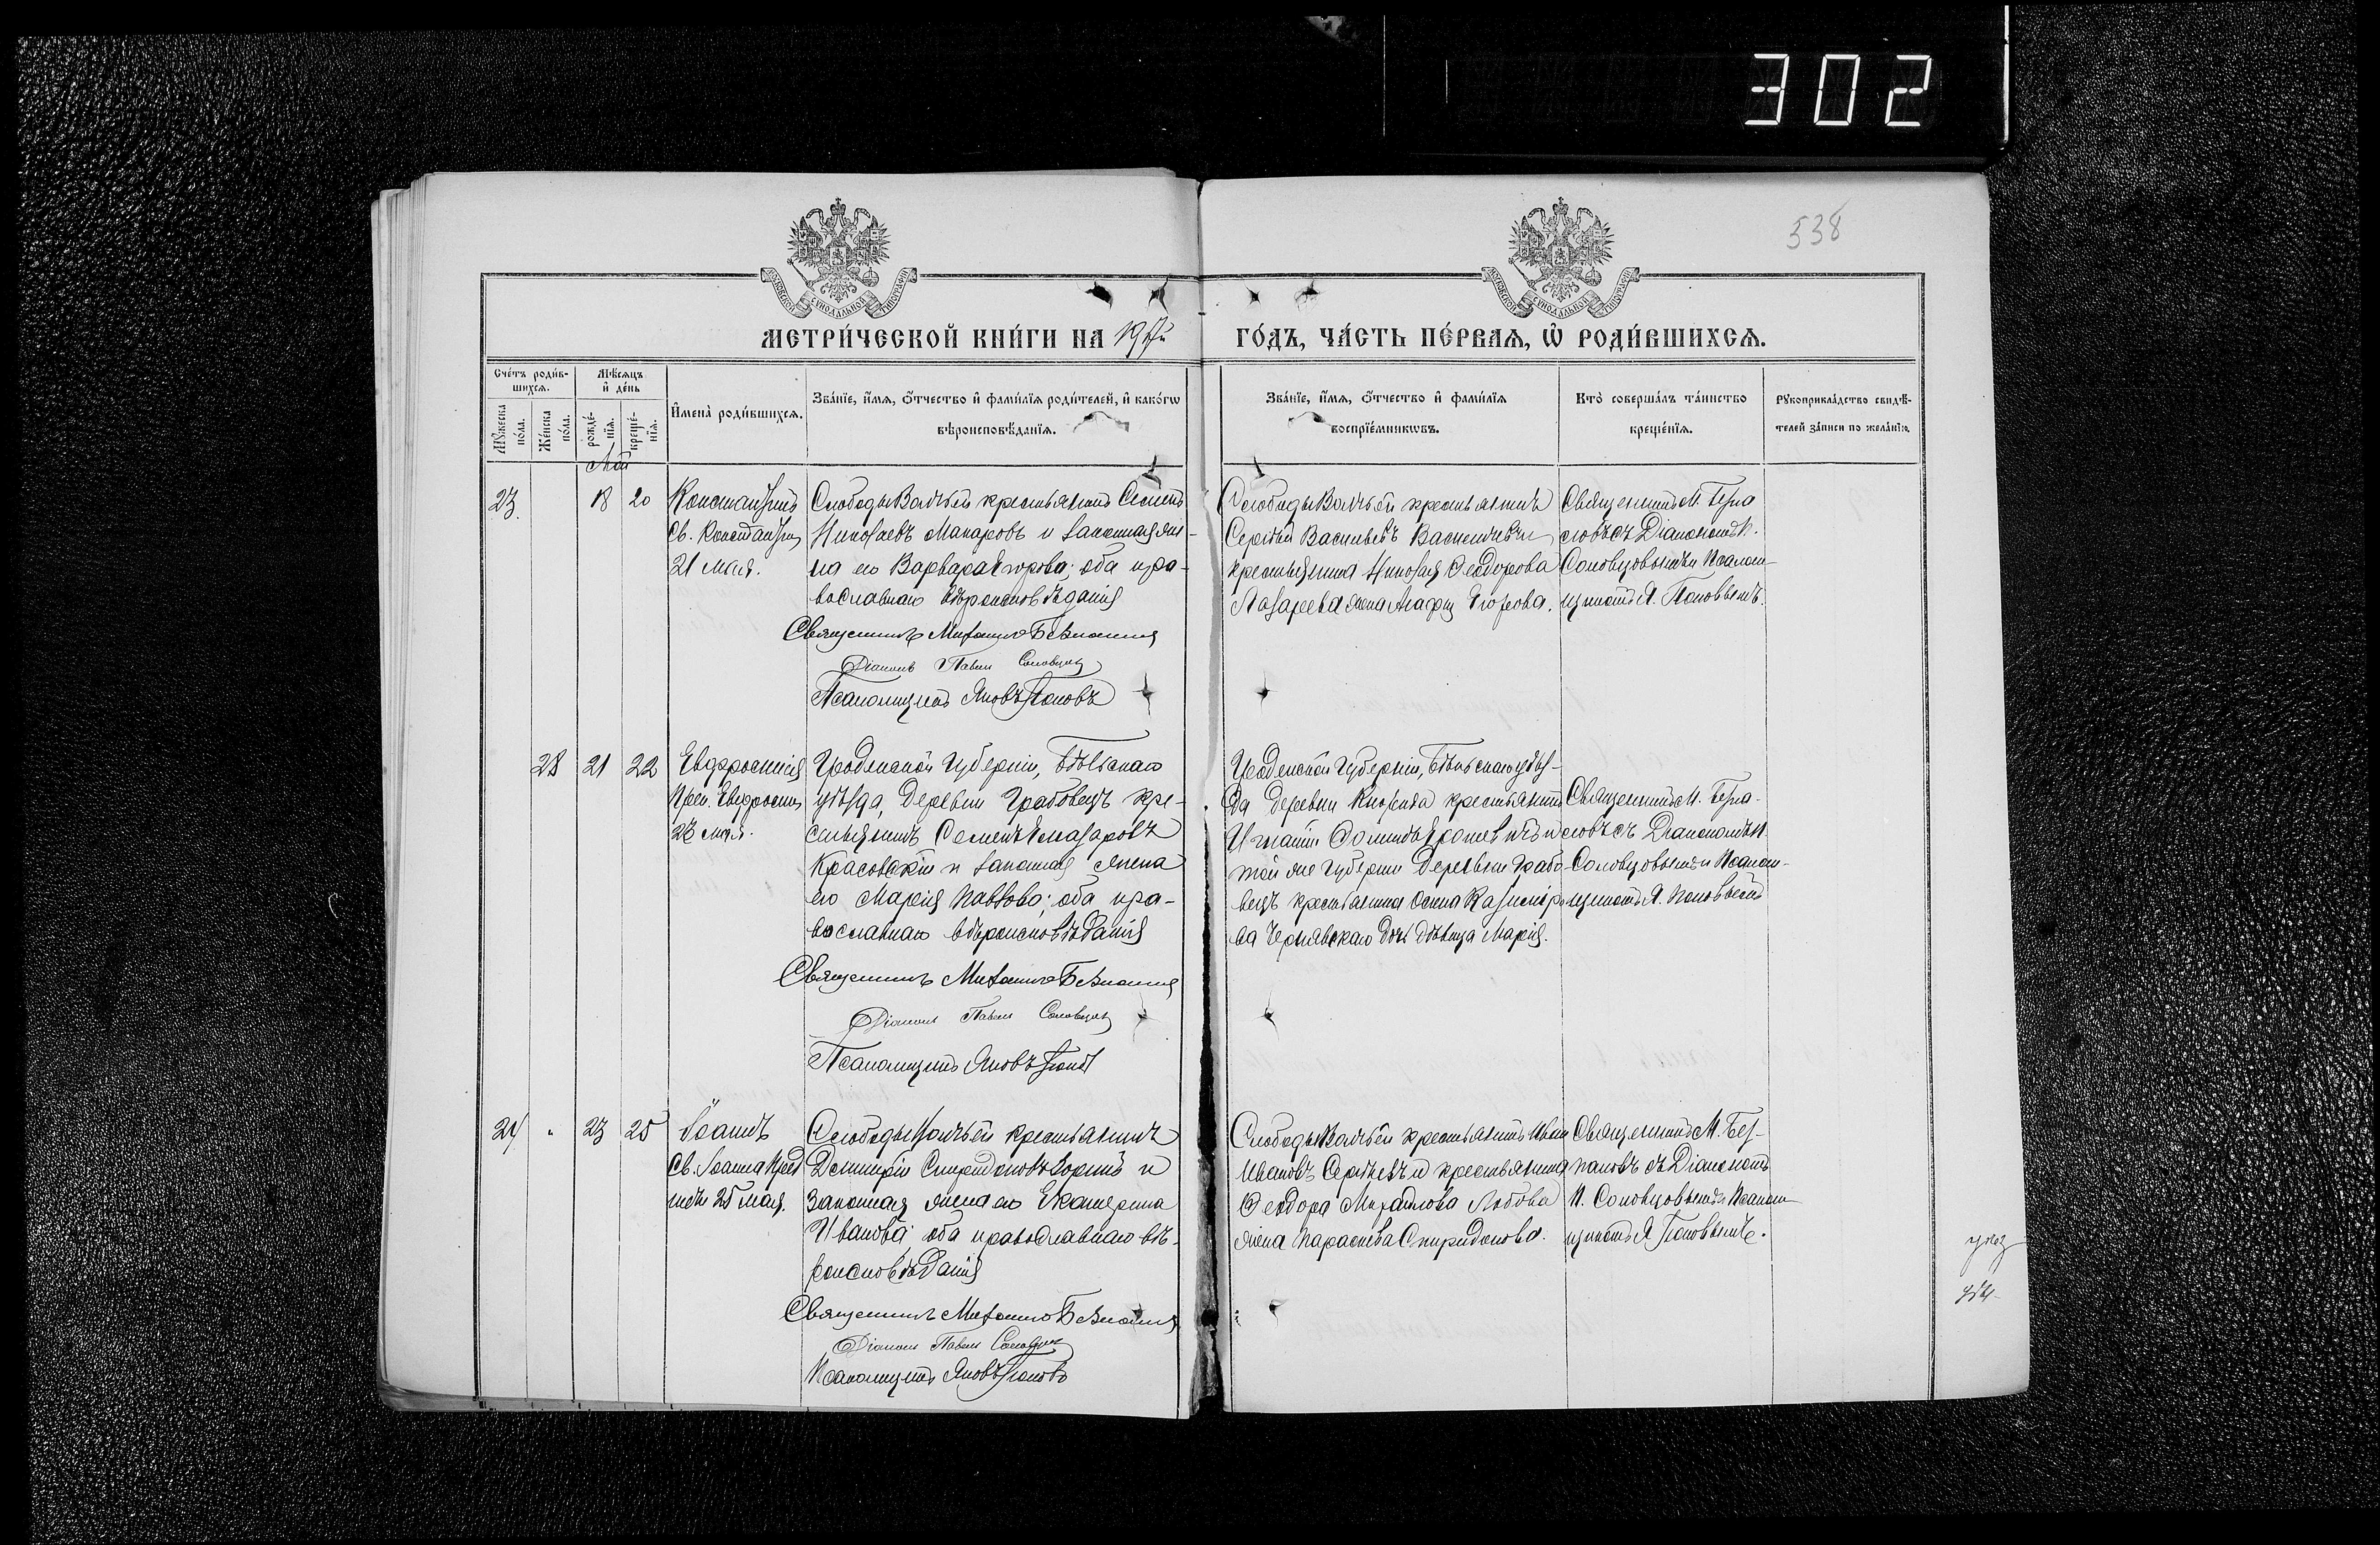 302
538
МЕТРИ́ЧЕСКОЙ КНИ́ГИ НА 1917й ГО́ДЪ, ЧА́СТЬ ПЕ́РВАѦ, Ѽ РОДИ́ВШИХСѦ.
Сче́тъ роди́в-
шихсѧ.
Мѣ́сѧцъ
и҆ де́нь
Мꙋ́жеска по́ла.
Же́нска по́ла.
рожде́-
нїѧ.
креще́-
нїѧ.
И҆мена̀ роди́вшихсѧ.
Зва́нїе, и҆́мѧ, ѻ҆́тчество и҆ фами́лїѧ роди́телей, и҆ како́гѡ
вѣроисповѣ́данїѧ.
Зва́нїе, и҆́мѧ, ѻ҆́тчество и҆ фами́лїѧ
воспрїе́мникѡвъ.
Кто̀ соверша́лъ та́инство
креще́нїѧ.
Рꙋкоприкла́дство свидѣ́-
телей за́писи по жела́нїю.
Май
23.
18
20
Константинъ
Св. Константина
21 мая.
Слободы Волчьей крестьянинъ Семенъ
Николаевъ Макаровъ и законная же-
на его Варвара Егорова; оба пра-
вославнаго вѣроисповѣданія
Священникъ Михаилъ
Діаконъ Павелъ Соловцовъ
Псаломщикъ Яковъ Поповъ
Слободы Волчьей крестьянинъ
Сергѣй Васильевъ и
крестьянина Николая Ѳеодорова
Лазарева жена Агафія Егорова.
Священникъ М. Безпа-
ловъ съ Діакономъ П.
Соловцовымъ и Псалом-
щикомъ Я. Поповымъ.
28
21
22
Евфросинія
Преп. Евфросиніи
23 мая.
Гродненской Губерніи, Бѣльскаго
уѣзда, деревни Грабовецъ кре-
стьянинъ Семенъ
Красовскій и законная жена
его Марія Павлова; оба пра-
вославнаго вѣроисповѣданія
Священникъ Михаилъ
Діаконъ Павелъ Соловцовъ
Псаломщикъ Яковъ Поповъ
Гродненской Губерніи, Бѣльскаго уѣз-
да деревни крестьянинъ
Игнатій и
той же Губерніи деревни Грабо-
вецъ крестьянина Осипа Казиміро-
ва Чернявскаго дочь дѣвица Марія.
Священникъ М. Безпа-
ловъ съ Діакономъ П.
Соловцовымъ и Псалом-
щикомъ Я. Поповымъ
24
23
25
Іоаннъ
Св. Іоанна Пред
течи 25 мая.
Слободы Волчьей крестьянинъ
Димитрій Спиридоновъ и
законная жена его Екатерина
Иванова; оба православнаго вѣ-
роисповѣданія
Священникъ Михаилъ
Діаконъ Павелъ
Псаломщикъ Яковъ Поповъ
Слободы Волчьей крестьянинъ Иванъ
Ивановъ Сергѣевъ и крестьянина
Ѳеодора Михайлова Лобова
жена Параскева Спиридонова.
Священникъ М. Без-
паловъ съ Діакономъ
П. Соловцовымъ и Псалом-
щикомъ Я. Поповымъ.